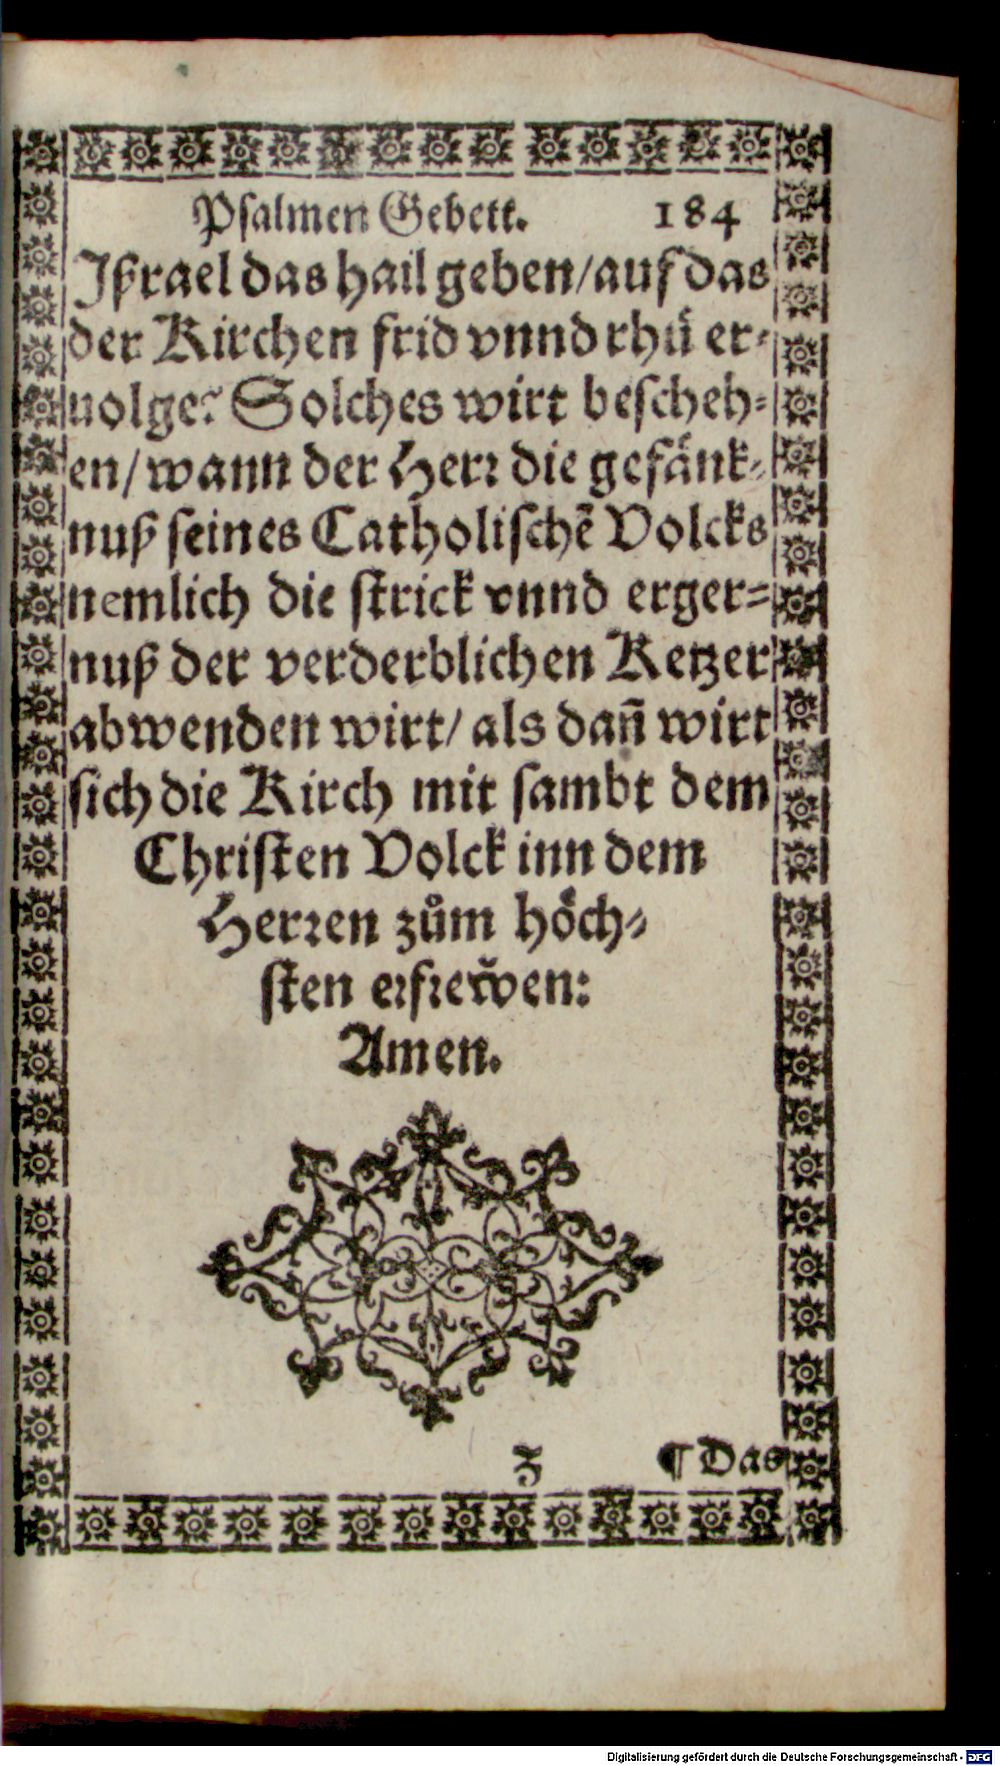 Psalmen Gebett. 184
Jßrael das hail geben/ auf das
der Kirchen frid vnnd rhů er-
uolge? Solches wirt bescheh-
en/ wann der Herr die gefänk-
nuß seines Catholischẽ Volcks
nemlich die strick vnnd erger-
nuß der verderblichen Ketzer
abwenden wirt/ als dañ wirt
sich die Kirch mit sambt dem
Christen Volck inn dem
Herren zům höch-
sten erfrewen:
Amen.
Z ¶ Das
Digitalisierung gefördert durch die Deutsche Forschungsgemeinschaft - DFG